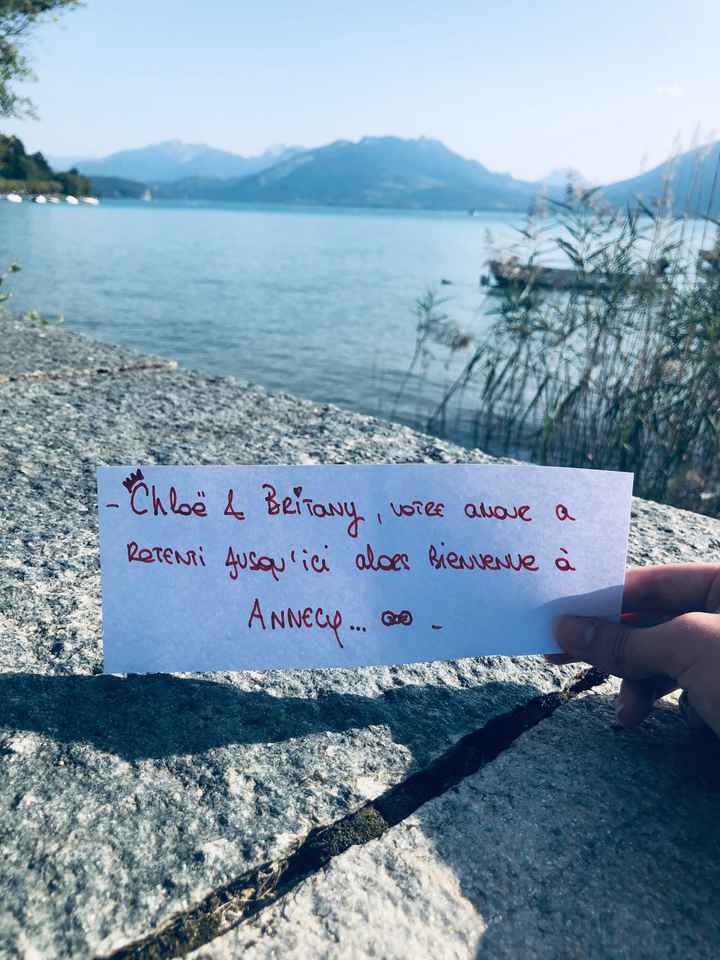 - Chloë & BRITany, votre amour a
RETENTI jusqu'ici alors Bienvenue à
ANNECY... ∞ -